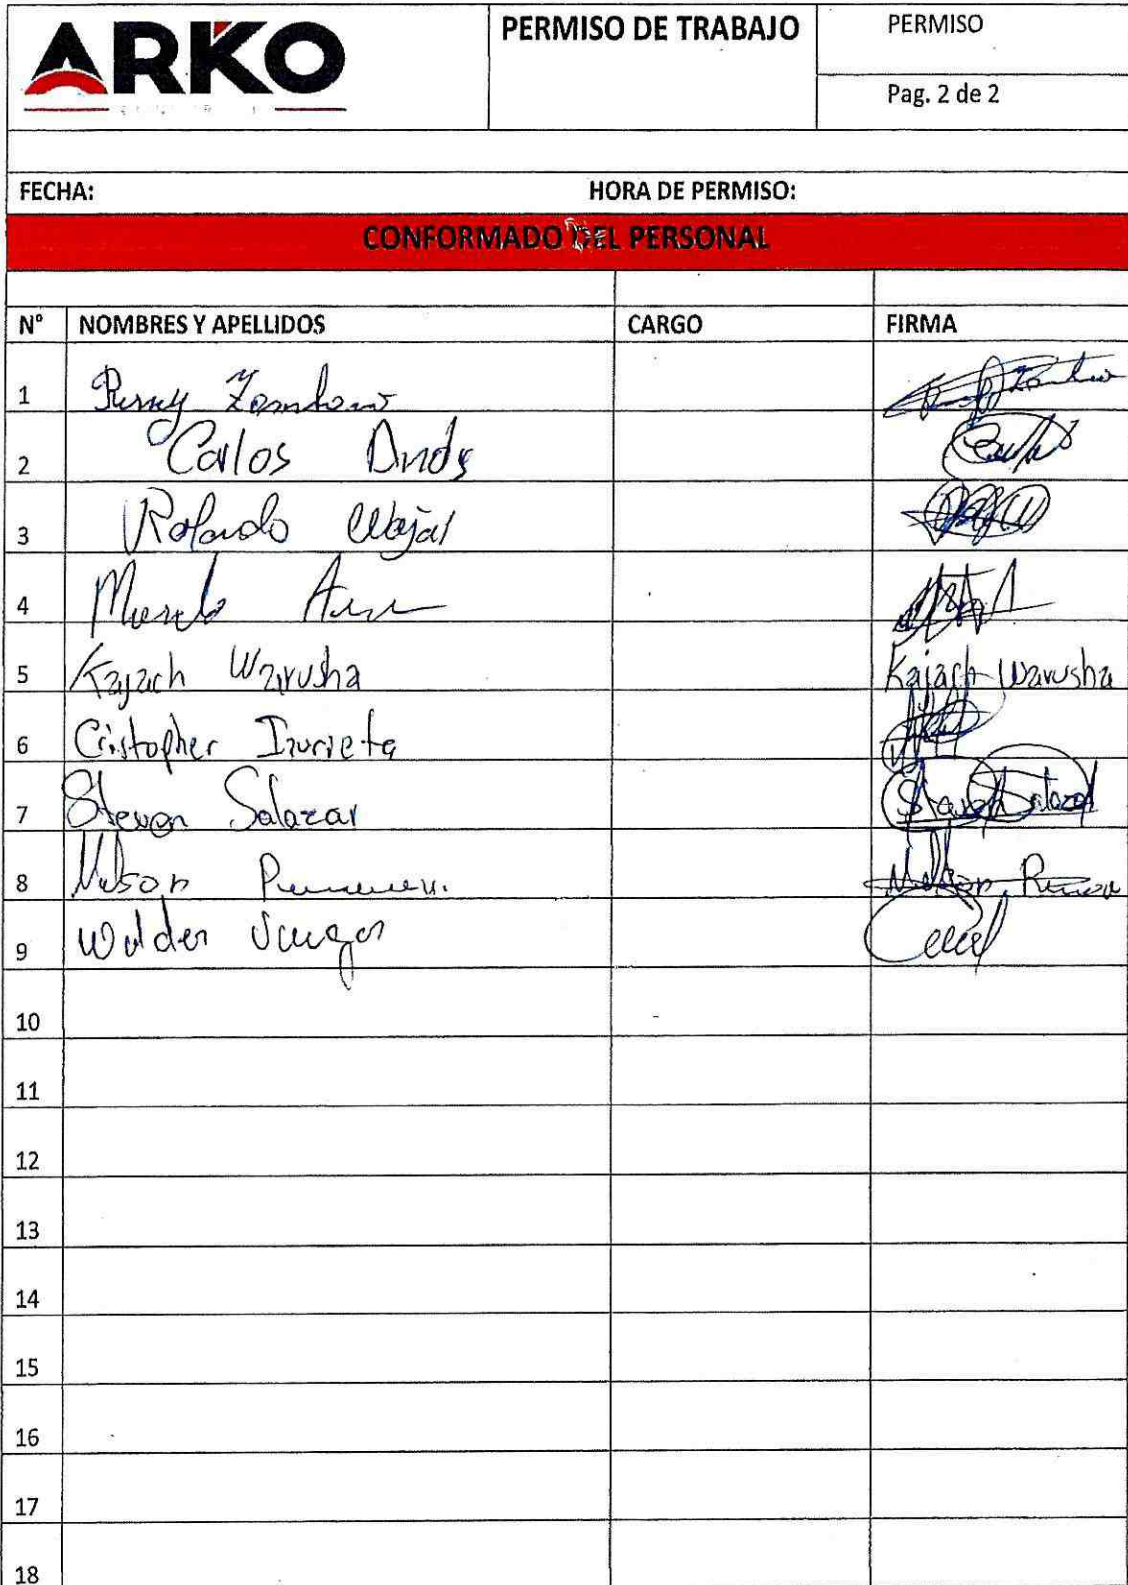 ARKO
PERMISO DE TRABAJO
PERMISO
Pag. 2 de 2
FECHA: HORA DE PERMISO:
CONFORMADO DEL PERSONAL
N° NOMBRES Y APELLIDOS CARGO FIRMA
1
2 Carlos Andy
3 Rolando
4
5 Kajach Warusha Kajach Warusha
6 Cristopher Izurieta
7 Steven Salazar Steven Salazar
8 Nelson Nelson
9 Walder Vargas
10
11
12
13
14
15
16
17
18